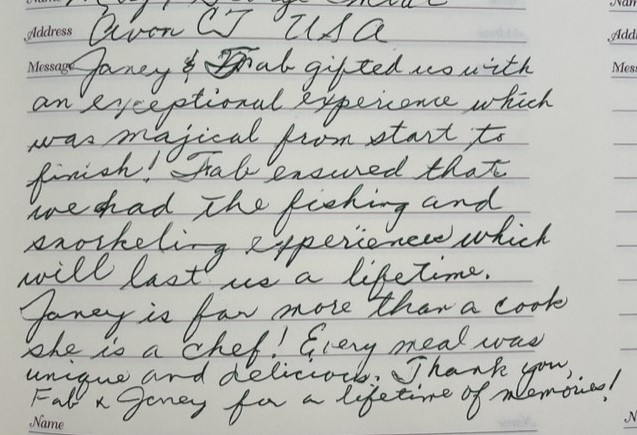 Address Avon CT USA
Message Janey & Fab gifted us with
an exceptional experience which
was majical from start to
finish! Fab ensured that
we had the fishing and
snorkeling experiences which
will last us a lifetime.
Janey is far more than a cook
she is a chef! Every meal was
unique and delicious. Thank you,
Fab & Janey for a lifetime of memories!
Name